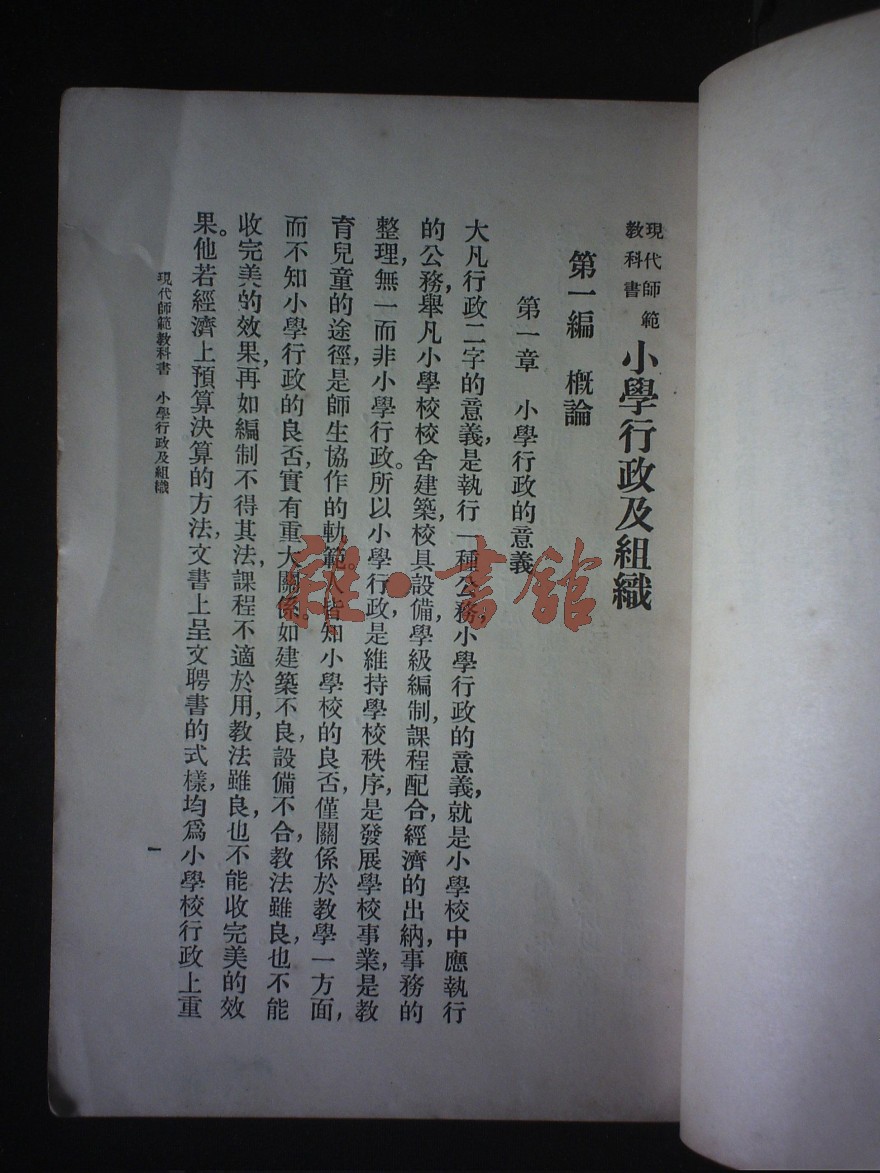 現代師範
教科書
小學行政及組織
第一編　概論
第一章　小學行政的意義
大凡行政二字的意義,是執行一種公務,小學行政的意義,就是小學校中應執行
的公務,舉凡小學校校舍建築,校具設備,學級編制,課程配合,經濟的出納,事務的
整理,無一而非小學行政。所以小學行政,是維持學校秩序,是發展學校事業,是教
育兒童的途徑,是師生協作的軌範。人皆知小學校的良否,僅關係於教學一方面,
而不知小學行政的良否,實有重大關係。如建築不良,設備不合,教法雖良,也不能
收完美的效果,再如編制不得其法,課程不適於用,教法雖良,也不能收完美的效
果。他若經濟上預算決算的方法,文書上呈文聘書的式樣,均爲小學校行政上重
現代師範教科書　小學行政及組織
一
雜·書館